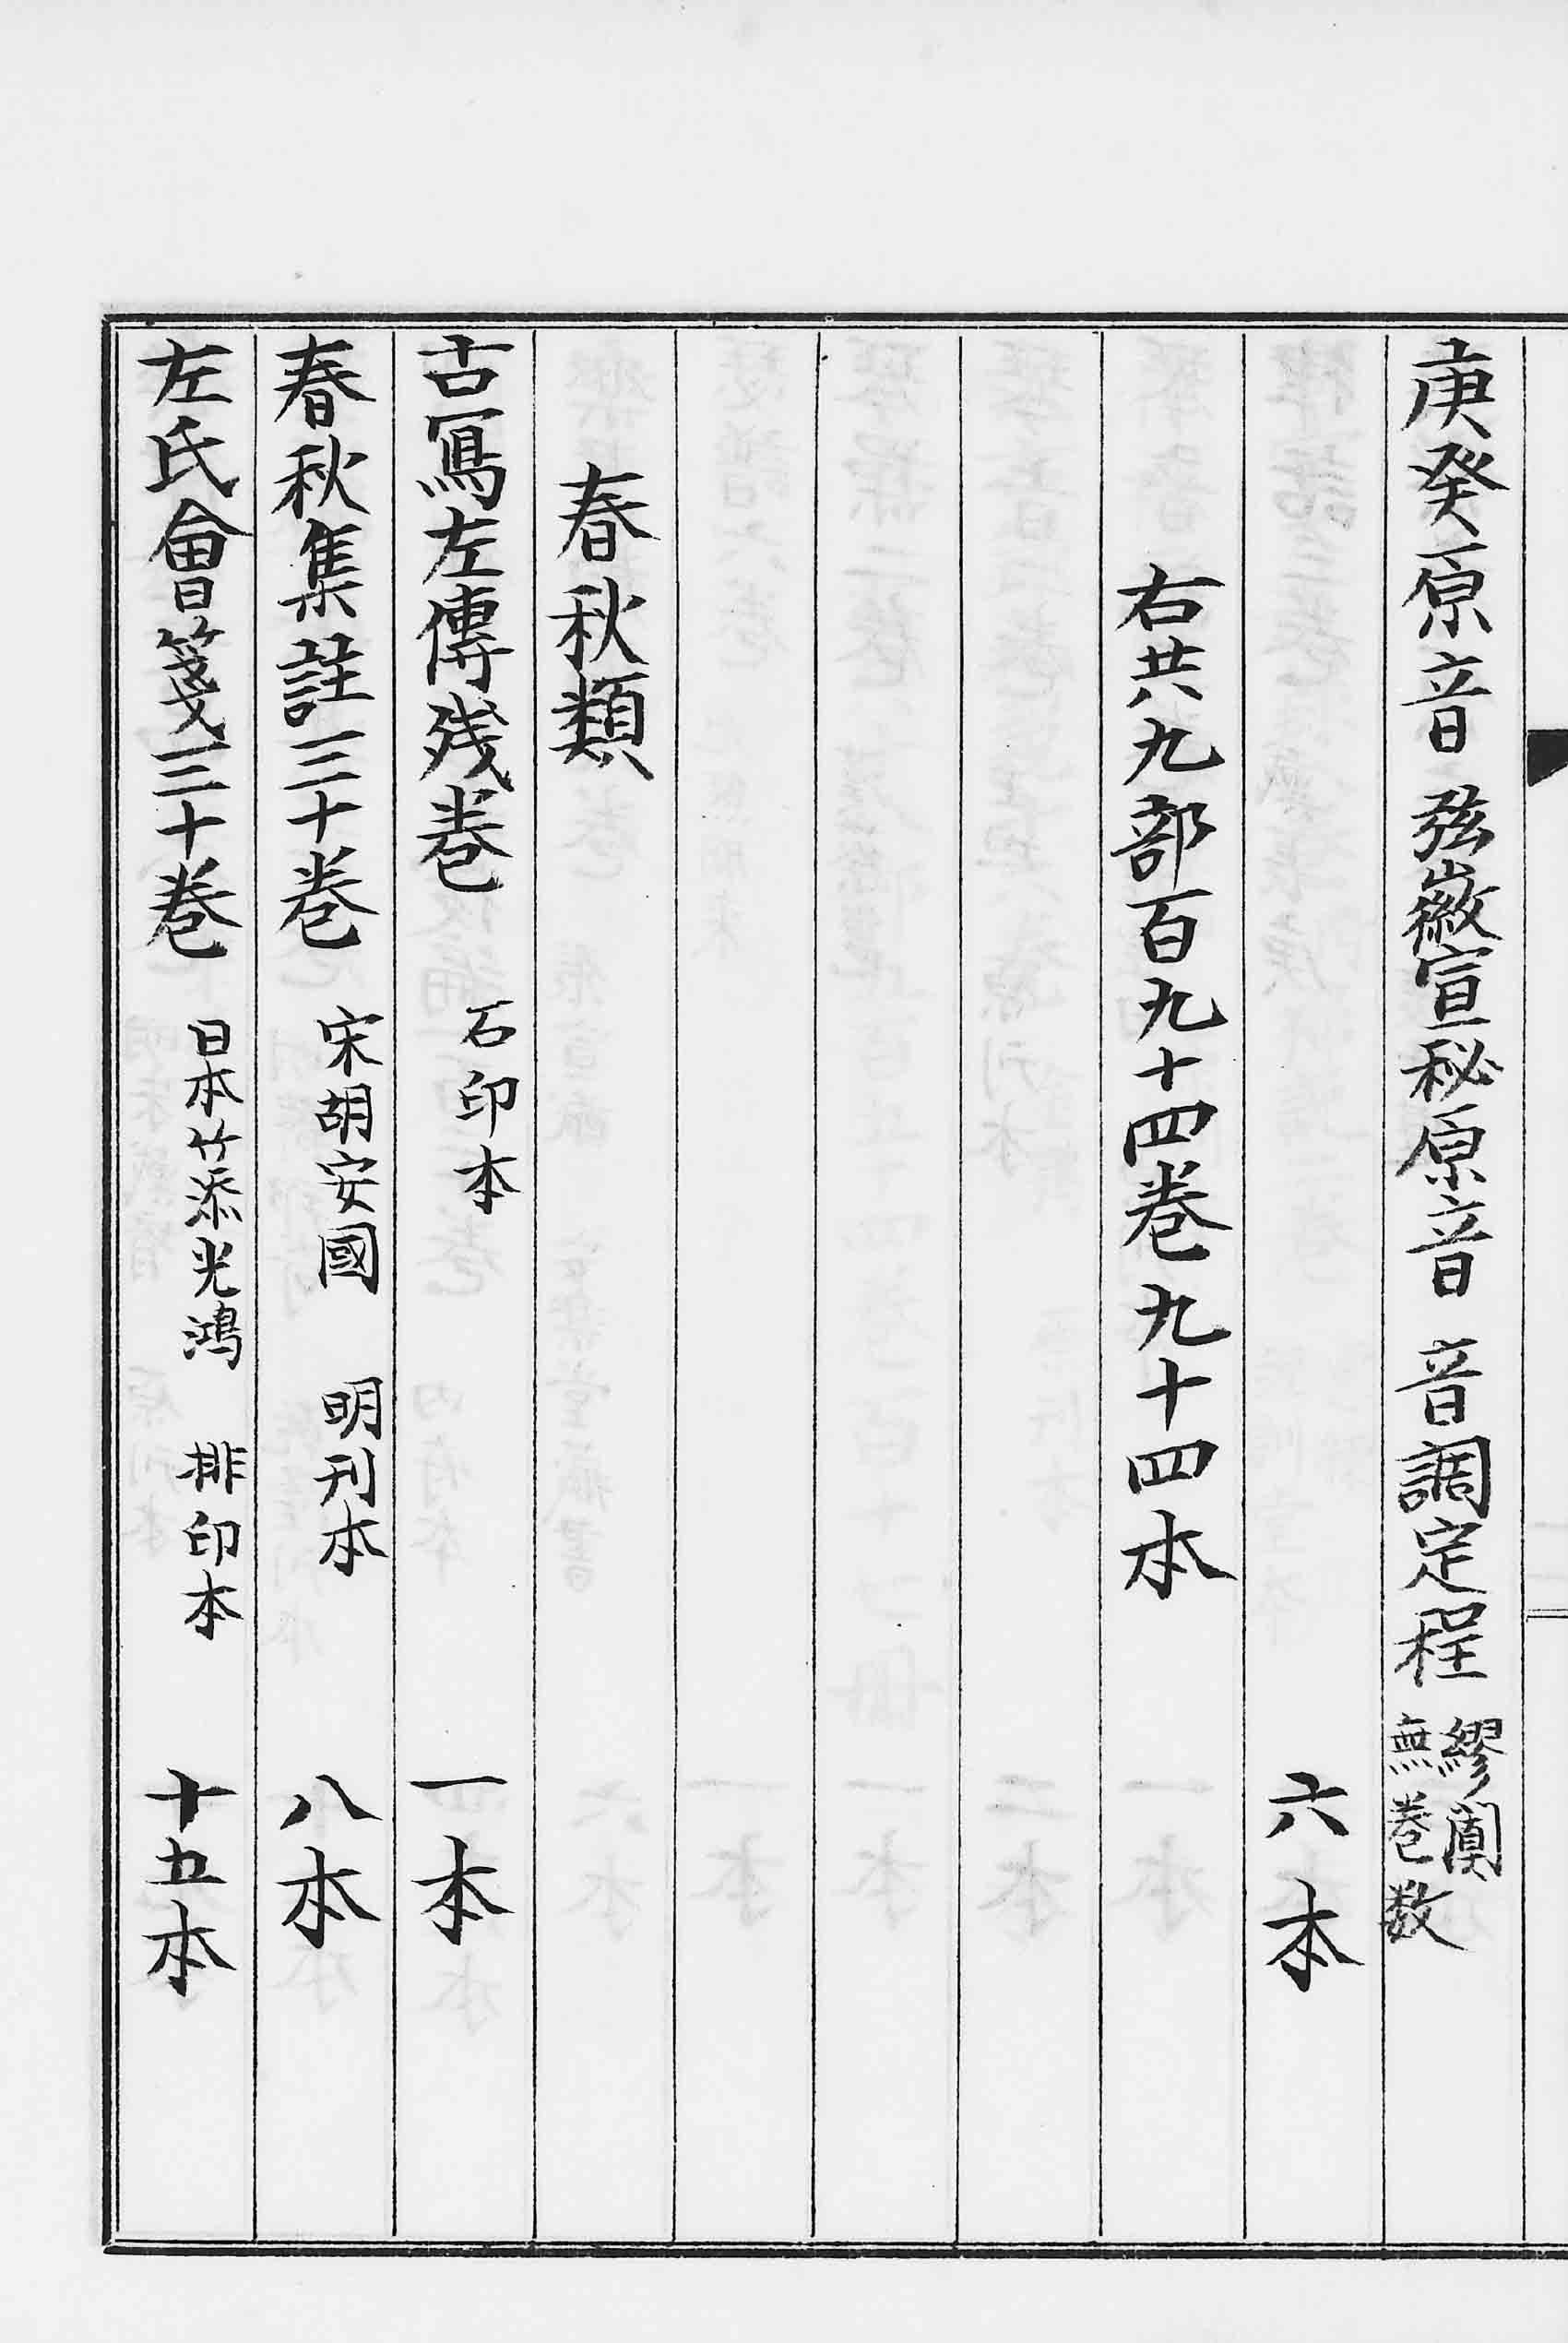 庚癸原音 弦徽宣秘原音 音調定程 繆闐 無卷数
六本
右共九部百九十四卷九十四本
春秋類
古冩左傳残卷 石印本 一本
春秋集註三十卷 宋胡安國 明刊本 八本
左氏會箋三十卷 日本竹添光鴻 排印本 十五本